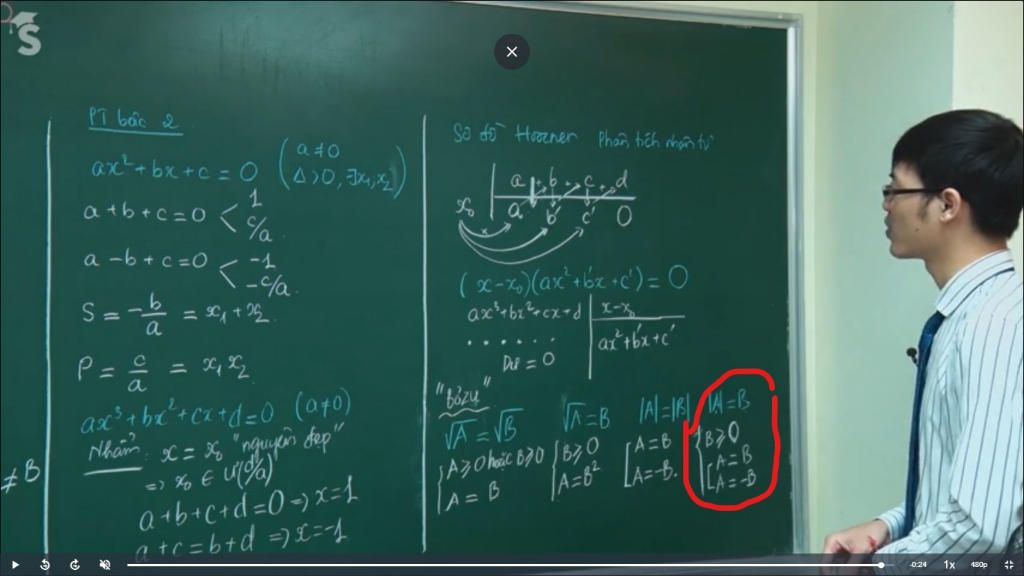 S
PT bậc 2
ax² + bx + c = 0 (a ≠ 0
Δ > 0, ∃x₁, x₂)
a + b + c = 0 < 1
c/a
a - b + c = 0 < -1
-c/a
S = -b/a = x₁ + x₂
P = c/a = x₁x₂
ax³ + bx² + cx + d = 0 (a ≠ 0)
Nhẩm: x = x₀ "nguyên đẹp"
=> x₀ ∈ Ư(d/a)
a + b + c + d = 0 => x = 1
a + c = b + d => x = -1
≠ B
Sơ đồ Hoocner phân tích nhân tử
a b c d
x₀ a b' c' 0
(x - x₀)(ax² + b'x + c') = 0
ax³ + bx² + cx + d | x - x₀
. . . . . . ax² + b'x + c'
Dư = 0
"Bộ tứ"
√A = √B
{ A ≥ 0 hoặc B ≥ 0
A = B
√A = B
{ B ≥ 0
A = B²
|A| = |B|
[ A = B
A = -B.
|A| = B
{ B ≥ 0
[ A = B
A = -B
-0:24 1x 480p